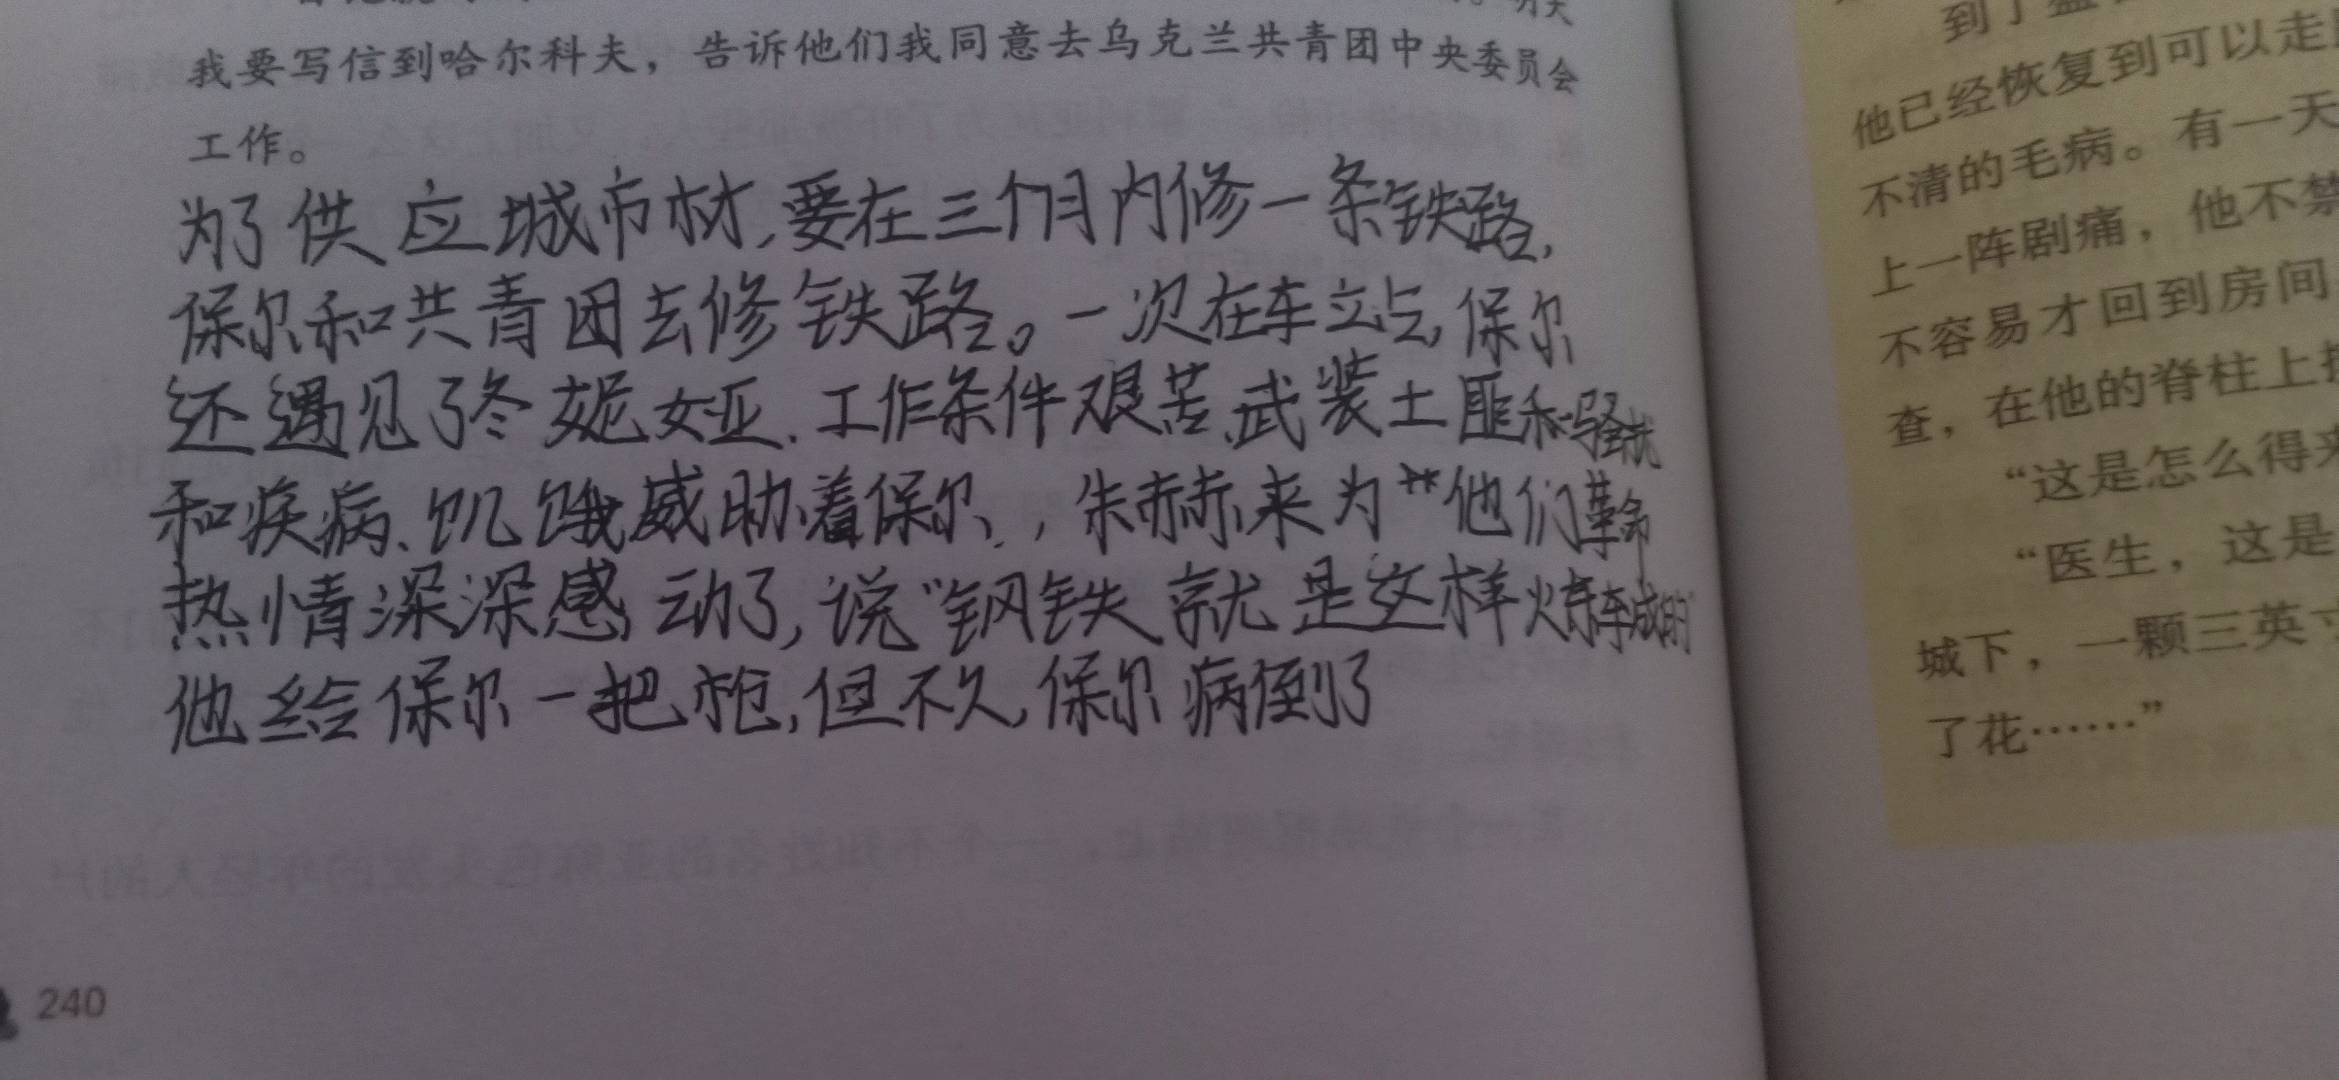 明天
我要写信到哈尔科夫，告诉他们我同意去乌克兰共青团中央委员会
工作。
为了供应城市木材,要在三个月内修一条铁路,
保尔和共青团去修铁路。一次在车站,保尔
还遇见了冬妮娅.工作条件艰苦,武装土匪和骚扰
和疾病、饥饿威胁着保尔,朱赫来为他们革命
热情深深感动了,说"钢铁就是这样炼成的"
他给保尔一把枪,但不久,保尔病倒了
240
到了
他已经恢复到可以走
不清的毛病。有一天
上一阵剧痛，他不禁
不容易才回到房间
查，在他的脊柱上
“这是怎么得来
“医生，这是
城下，一颗三英寸
了花……”